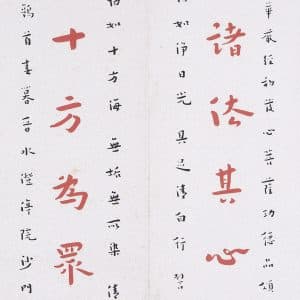 華嚴經初發心菩薩功德品頌
諸法其心
如淨日光具足清白行
如十方海無垢無所染清
十方為眾
首春暮晉水澄淨院沙門